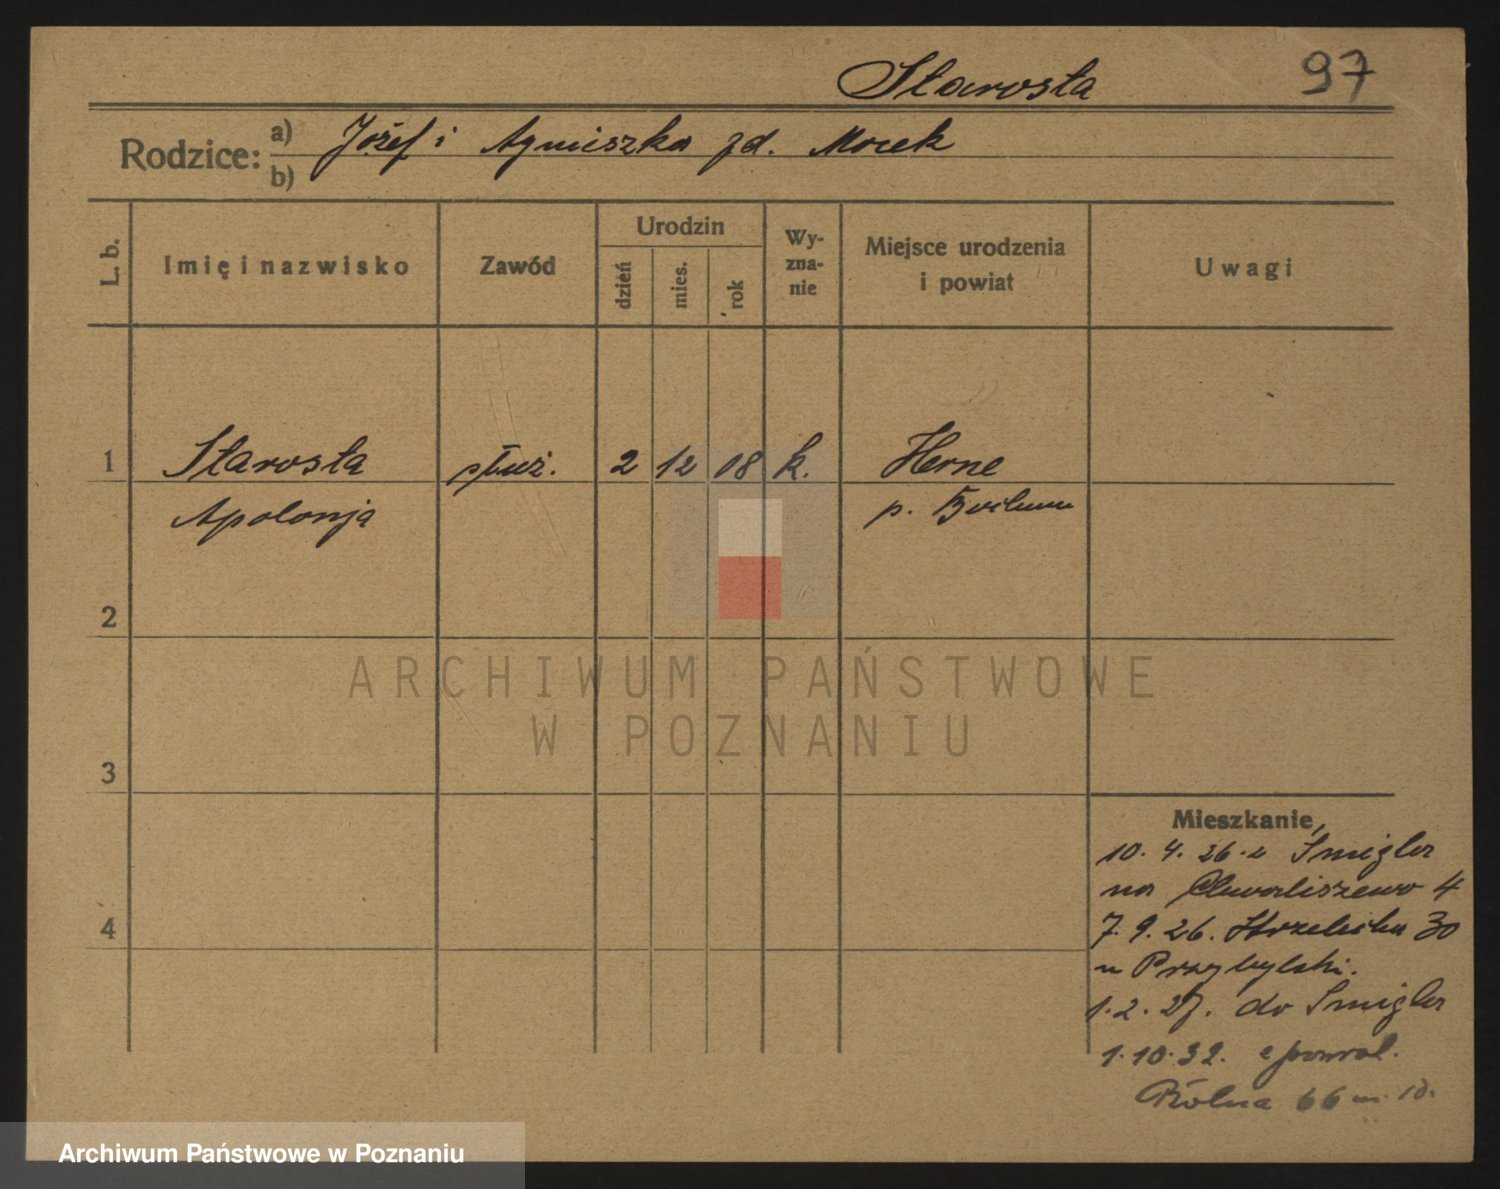 Starosta
97
Rodzice:
a) Józef i Agnieszka zd. Mocek
b)
L. b.
Imię i nazwisko
Zawód
Urodzin
dzień
mies.
rok
Wy-
zna-
nie
Miejsce urodzenia
i powiat
Uwagi
1 Starosta służ. 2 12 18 k. Herne
Apolonja p. Bochum
2
ARCHIWUM PAŃSTWOWE
W POZNANIU
3
Mieszkanie
10. 4. 26. z Śmigla
na Chwaliszewo 4
4
7. 9. 26. Strzelecka 30
u Przybylski.
1. 2. 27. do Śmigla
1. 10. 32. z powrot.
Rólna 66 m. 10.
Archiwum Państwowe w Poznaniu